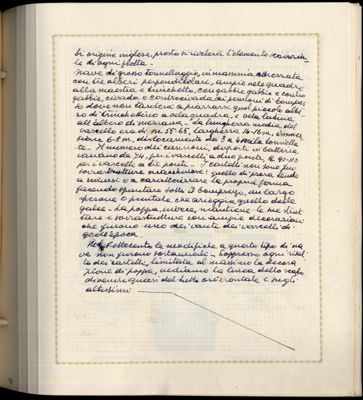 In origine inglese, presto si rivelerà l'elemento essenzia
le di ogni flotta -
Nave di grosso tonnellaggio, in maniera attrezzata
con tre alberi perpendicolari, ampie vele quadre
alla maestra e trinchetto, con gabbie e contro
gabbie, civada e controcivada dei pennoni di bompres
so dove non tarderà a piazzarsi quel piccolo albe
ro di trinchettino a vela quadra, e vela latina
all'albero di mezzana - La lunghezza media del
vascello era di m. 55-65, larghezza 14-16 m, immer
sione 6-8 m, dislocamento da 3 a 4000 tonnella
te - Il numero dei cannoni, disposti in batterie
variava da 74, per vascelli a due ponti, a 90-110
per i vascelli a tre ponti - I castelli non sono più
sovrastrutture : quello di prora tende
a ridursi e a caratterizzare la propria forma
facendo spuntare sotto il bompresso, un largo
sperone o puntale che arieggia quello delle
galee - La poppa, invece, mantiene le sue strut
ture e sovrastrutture con ampie decorazioni
che furono uno dei vanti dei vascelli di
quell'epoca
Nel Settecento le modifiche a questo tipo di na
ve non furono sostanziali - Soppresso ogni rial
to dei castelli, limitata al massimo la decora
zione di poppa, vediamo la linea dello scafo
divenire quasi del tutto orizzontale e negli
altissimi